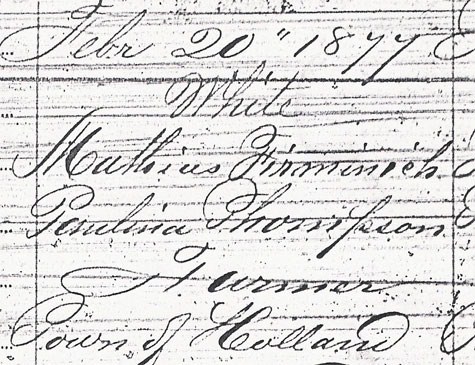 Febr 20" 1877
White
Mathias Firminich
Paulina Thompson
Farmer
Town of Holland